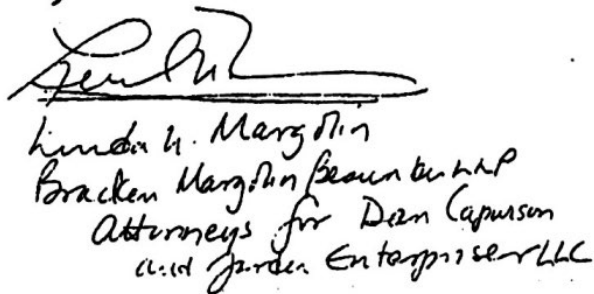 Linda U. Margolin
Bracken Margolin Besunder LLP
Attorneys for Dean Capurson
and Jorden Enterprises LLC